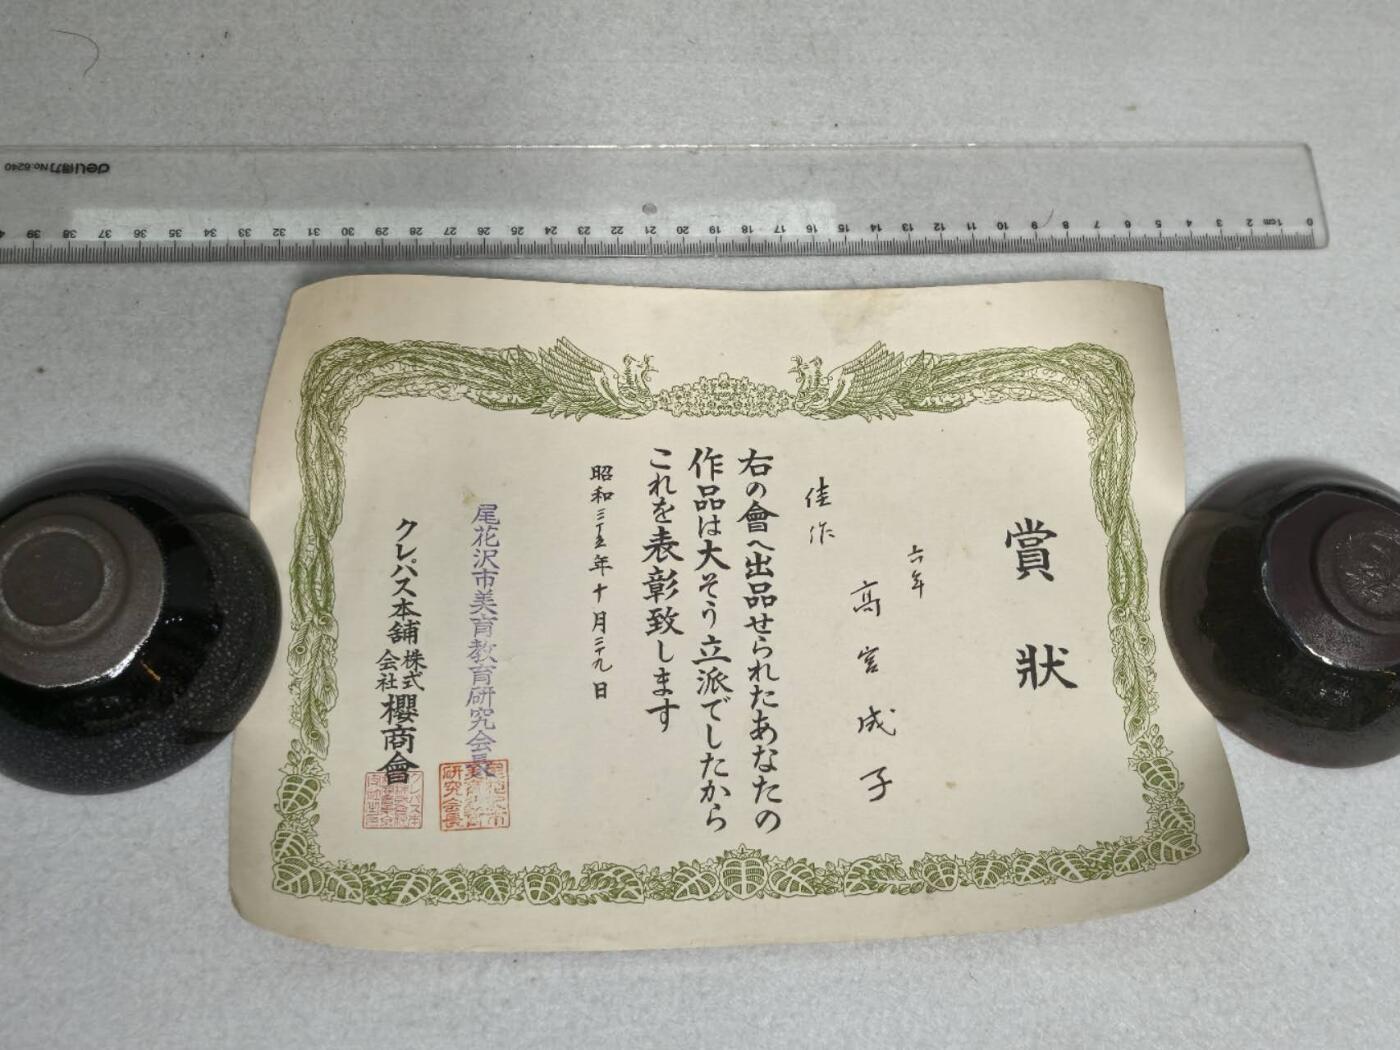 賞狀
六年
高宮成子
佳作
右の會へ出品せられたあなたの
作品は大そう立派でしたから
これを表彰致します
昭和三十五年十月二十九日
尾花沢市美育教育研究会長
クレパス本舗 株式会社 櫻商會
deli得力 No.6240
0 1cm 2 3 4 5 6 7 8 9 10 11 12 13 14 15 16 17 18 19 20 21 22 23 24 25 26 27 28 29 30 31 32 33 34 35 36 37 38 39